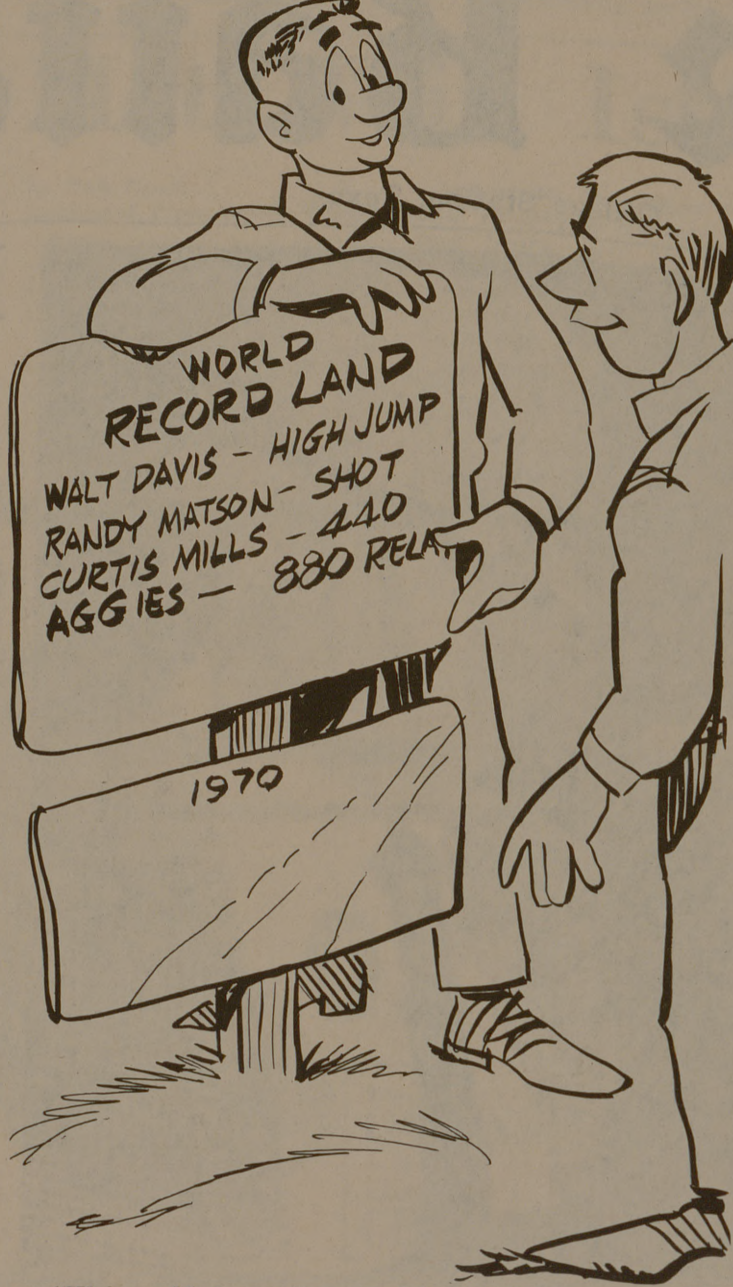 WORLD
RECORD LAND
WALT DAVIS - HIGH JUMP
RANDY MATSON - SHOT
CURTIS MILLS - 440
AGGIES - 880
1970